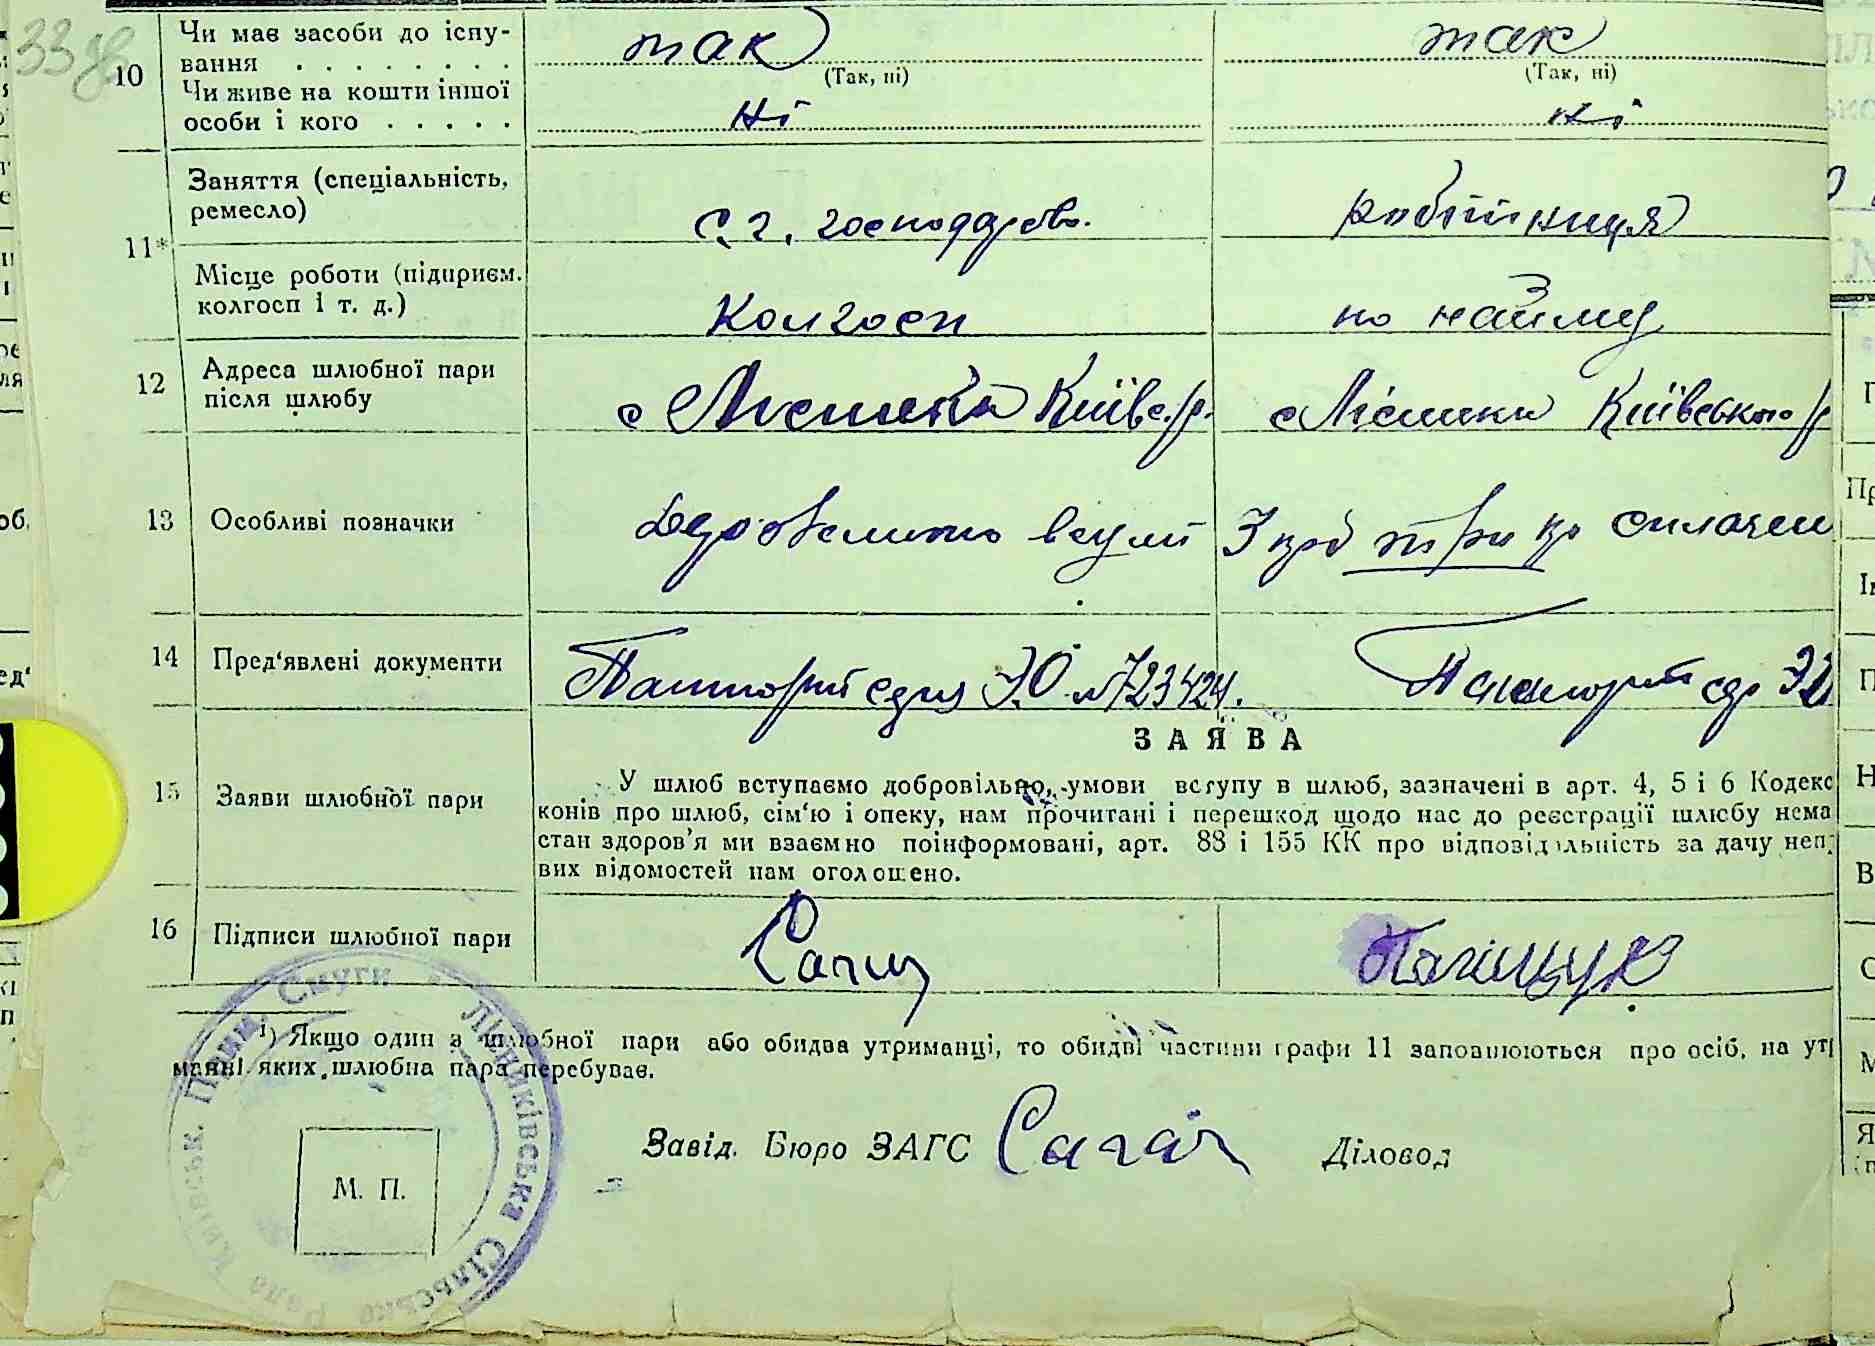 33
10 Чи має засоби до існу-
вання . . . . . . . . так так
(Так, ні) (Так, ні)
Чи живе на кошти іншої
особи і кого . . . . . ні ні
Заняття (спеціальність,
ремесло) с. г. господарство. робітниця
11*
Місце роботи (підприєм.
колгосп і т. д.) Колгосп по найму
12 Адреса шлюбної пари
після шлюбу с Лісники Київс. р. с Лісники Київського р
13 Особливі позначки З крб три кр сплачен
14 Пред'явлені документи Пашпорт серія ЭО № 723424. Пашпорт сер
ЗАЯВА
15 Заяви шлюбної пари
У шлюб вступаємо добровільно, умови вступу в шлюб, зазначені в арт. 4, 5 і 6 Кодекс
конів про шлюб, сім'ю і опеку, нам прочитані і перешкод щодо нас до реєстрації шлюбу нема
стан здоров'я ми взаємно поінформовані, арт. 88 і 155 КК про відповідальність за дачу неп
вих відомостей нам оголошено.
16 Підписи шлюбної пари
¹) Якщо один з шлюбної пари або обидва утриманці, то обидві частини графи 11 заповнюються про осіб, на ут
манні яких шлюбна пара перебуває.
Завід. Бюро ЗАГС Сагач Діловод
М. П.
Лісниківська Сільська Рада Київськ. Прим. Смуги